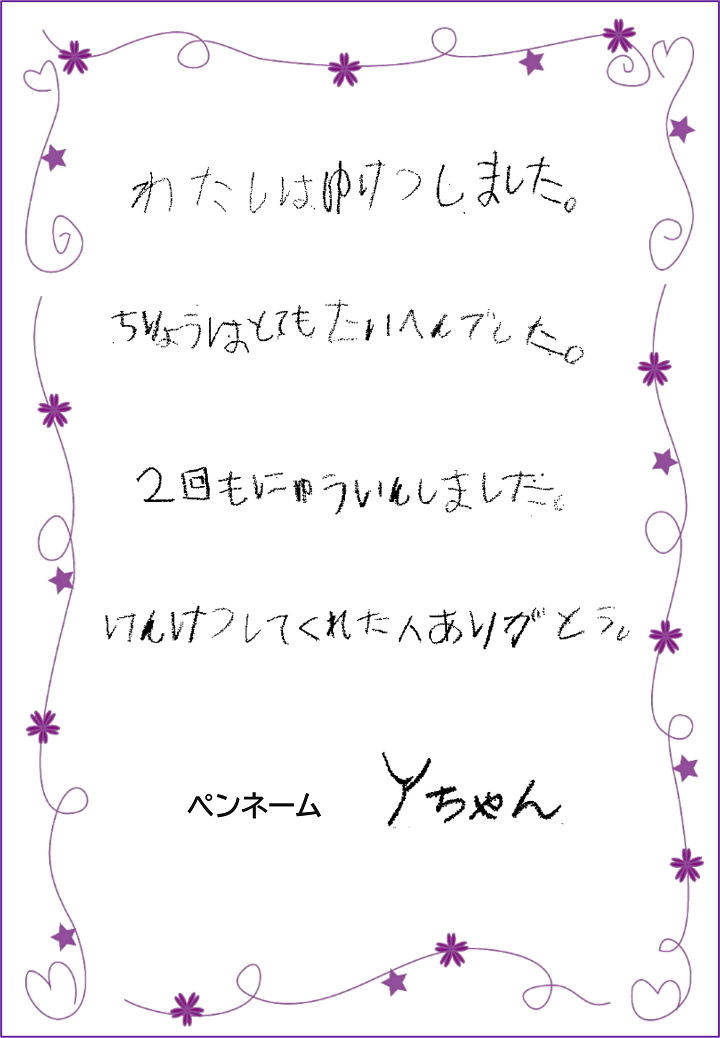 わたしはゆけつしました。
ちりょうはとてもたいへんでした。
2回もにゅういんしましだ。
けんけつしてくれた人ありがとう。
ペンネーム Yちゃん